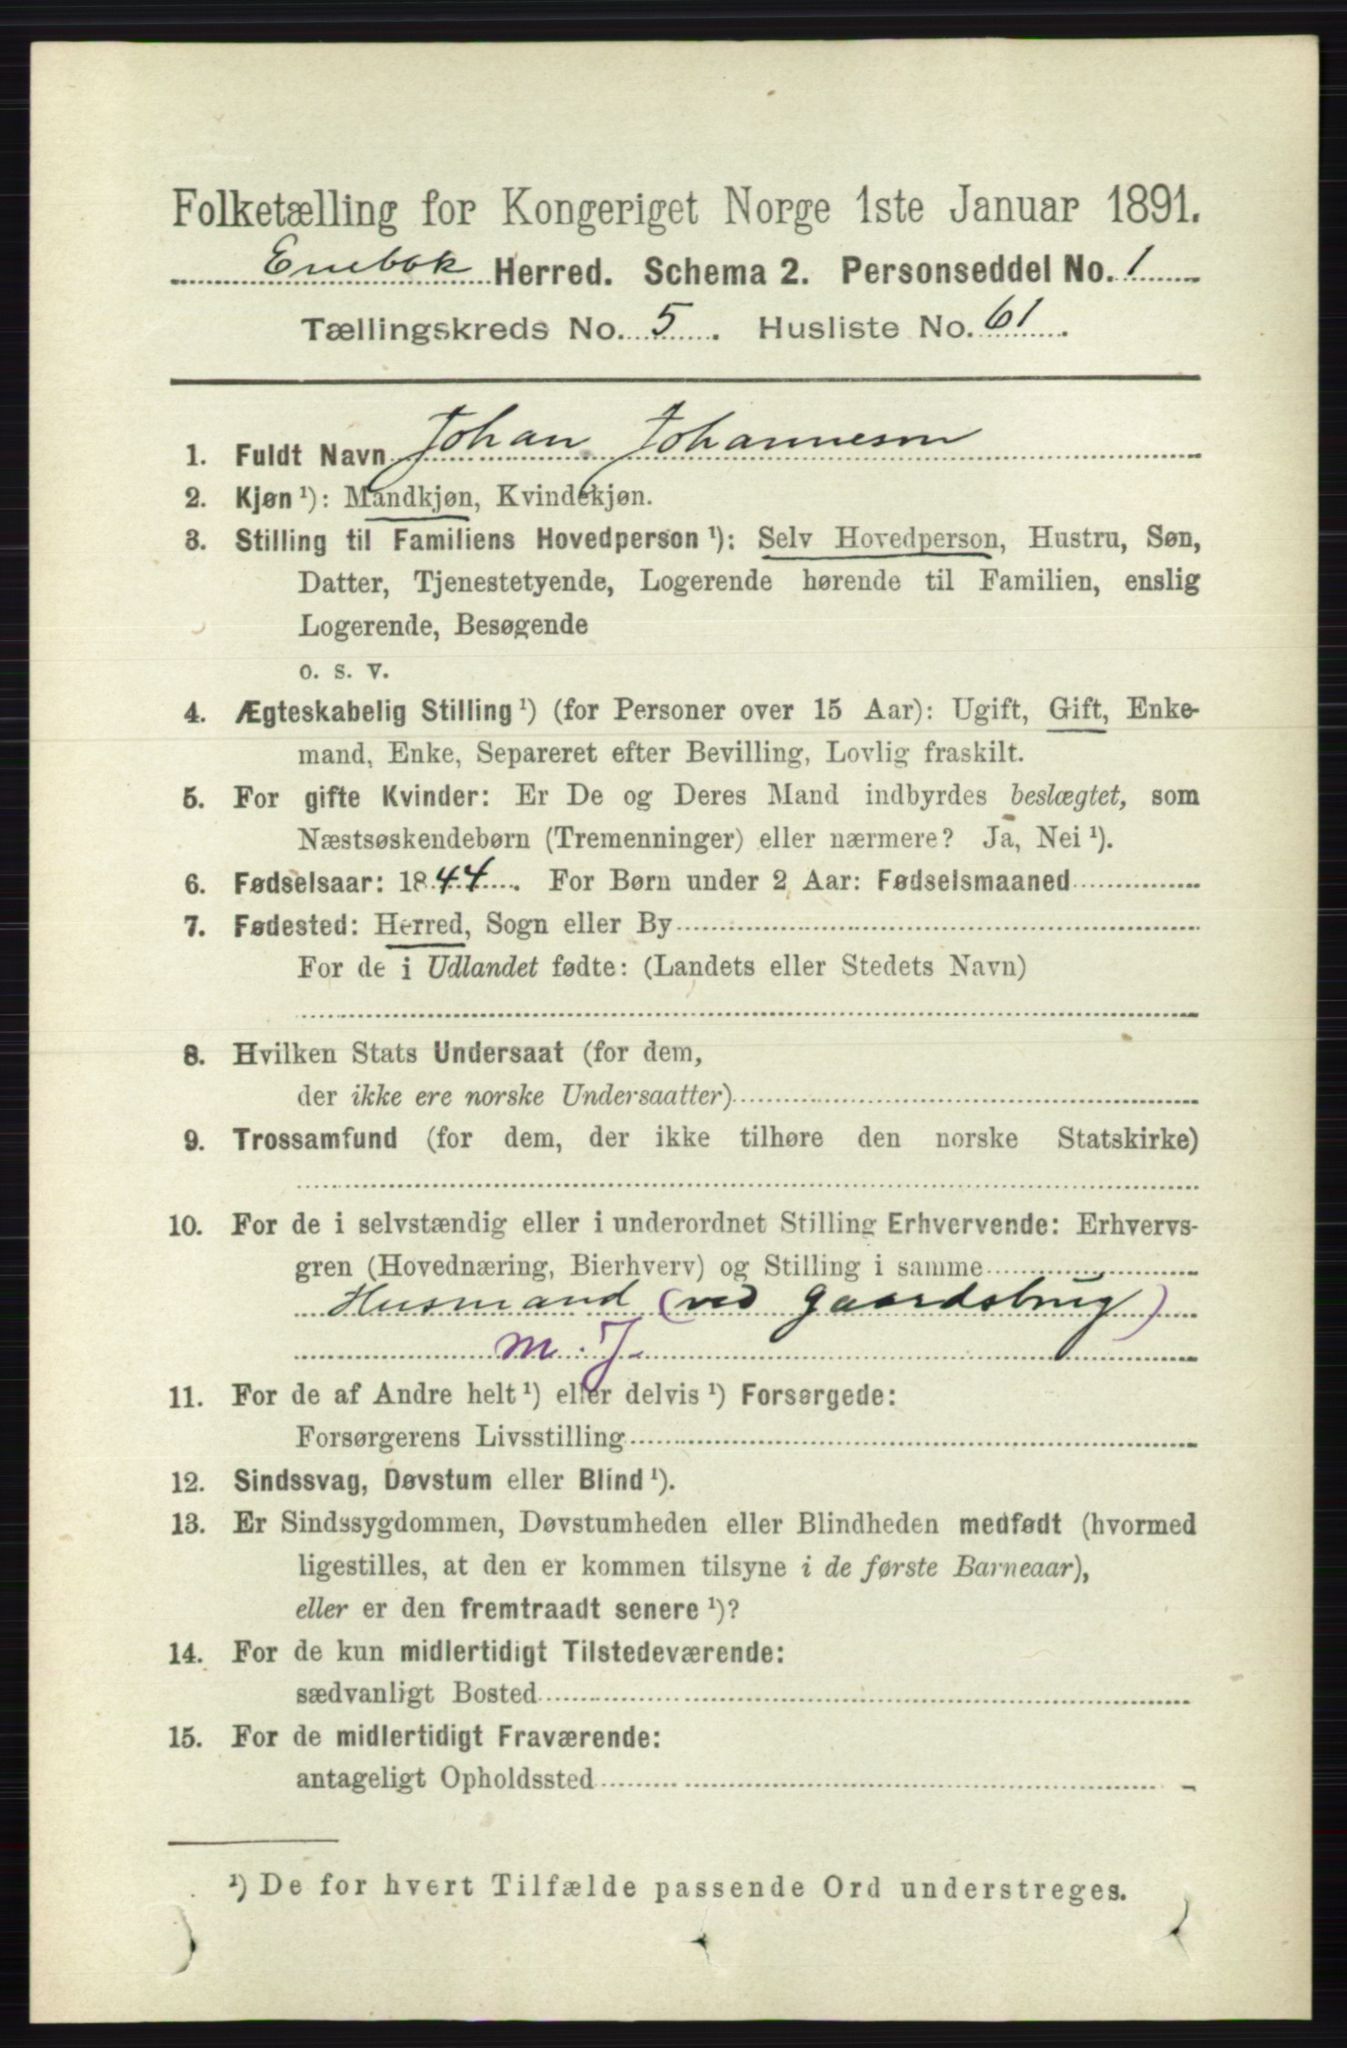 Folketælling for Kongeriget Norge 1ste Januar 1891.
Enebak Herred. Schema 2. Personseddel No. 1
Tællingskreds No. 5. Husliste No. 61.
1. Fuldt Navn Johan Johannesen
2. Kjøn ¹): Mandkjøn, Kvindekjøn.
3. Stilling til Familiens Hovedperson ¹): Selv Hovedperson, Hustru, Søn,
Datter, Tjenestetyende, Logerende hørende til Familien, enslig
Logerende, Besøgende
o. s. v.
4. Ægteskabelig Stilling ¹) (for Personer over 15 Aar): Ugift, Gift, Enke-
mand, Enke, Separeret efter Bevilling, Lovlig fraskilt.
5. For gifte Kvinder: Er De og Deres Mand indbyrdes beslægtet, som
Næstsøskendebørn (Tremenninger) eller nærmere? Ja, Nei ¹).
6. Fødselsaar: 1844. For Børn under 2 Aar: Fødselsmaaned
7. Fødested: Herred, Sogn eller By
For de i Udlandet fødte: (Landets eller Stedets Navn)
8. Hvilken Stats Undersaat (for dem,
der ikke ere norske Undersaatter)
9. Trossamfund (for dem, der ikke tilhøre den norske Statskirke)
10. For de i selvstændig eller i underordnet Stilling Erhvervende: Erhvervs-
gren (Hovednæring, Bierhverv) og Stilling i samme
Husmand (ved gaardsbrug)
m. J.
11. For de af Andre helt ¹) eller delvis ¹) Forsørgede:
Forsørgerens Livsstilling
12. Sindssvag, Døvstum eller Blind ¹).
13. Er Sindssygdommen, Døvstumheden eller Blindheden medfødt (hvormed
ligestilles, at den er kommen tilsyne i de første Barneaar),
eller er den fremtraadt senere ¹)?
14. For de kun midlertidigt Tilstedeværende:
sædvanligt Bosted
15. For de midlertidigt Fraværende:
antageligt Opholdssted
¹) De for hvert Tilfælde passende Ord understreges.